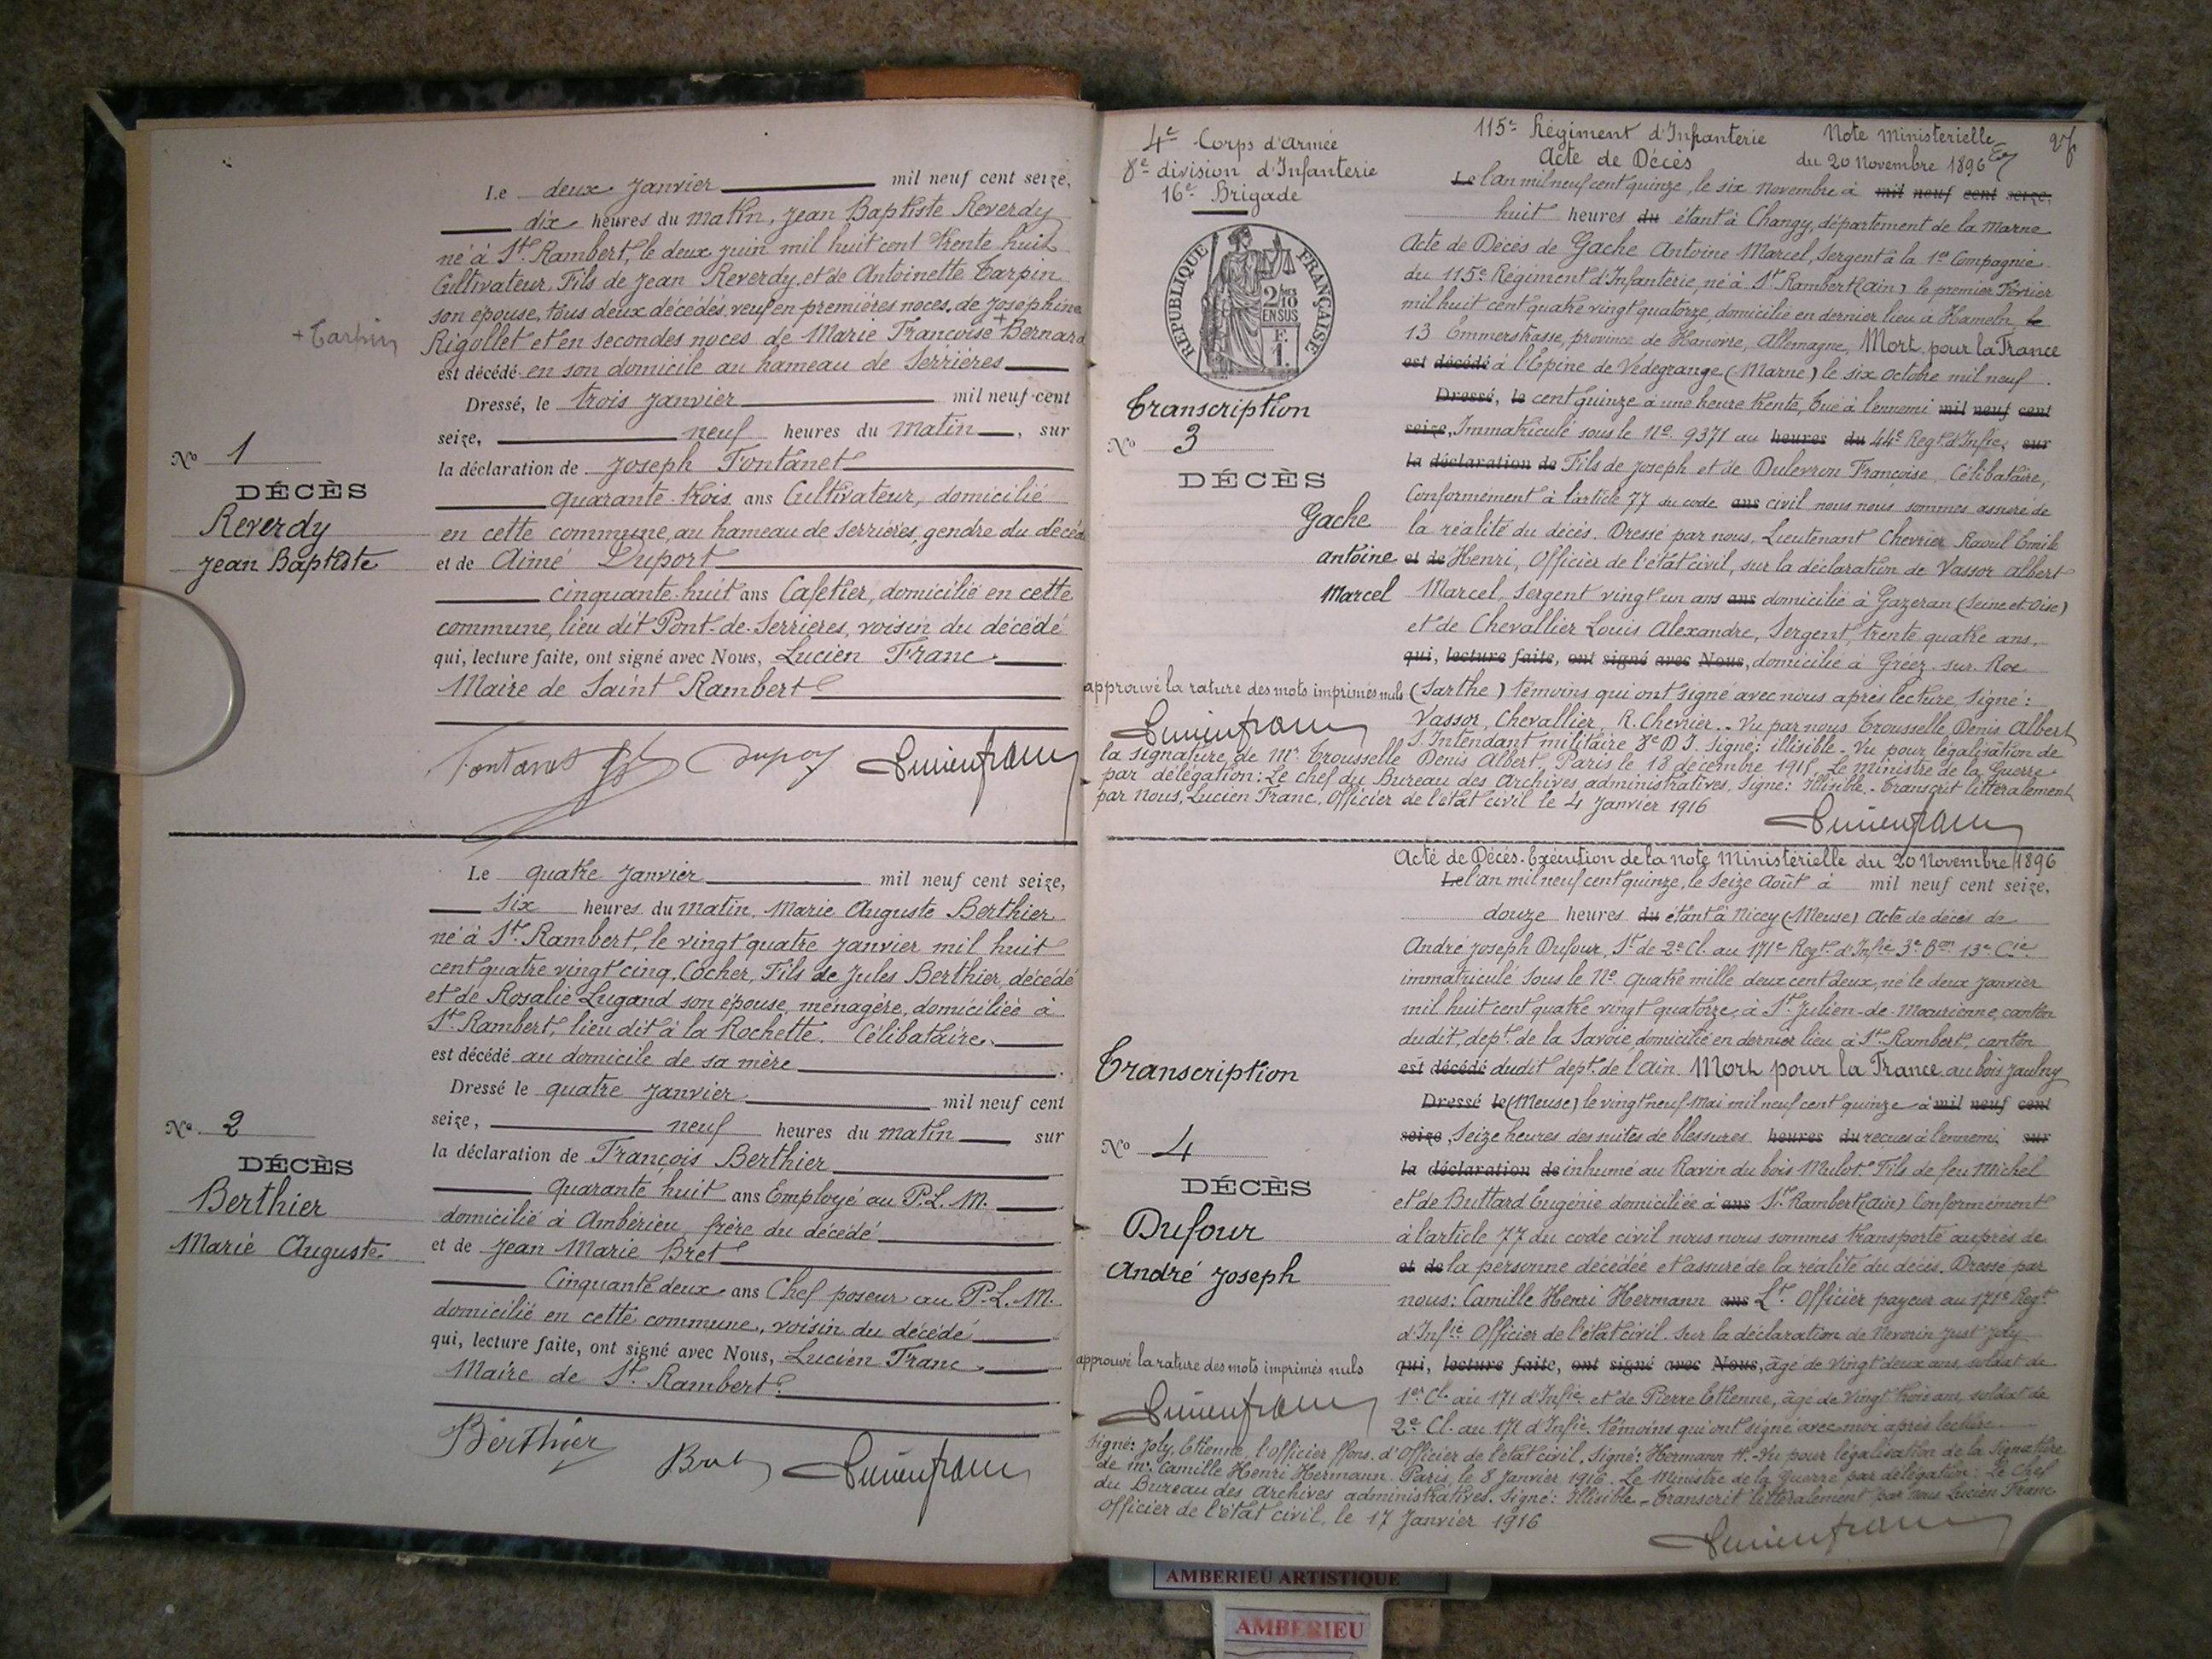 Le deux Janvier mil neuf cent seize,
dix heures du Matin, Jean Baptiste Reverdy
né à St. Rambert, le deux juin mil huit cent trente huit
Cultivateur, Fils de Jean Reverdy et de Antoinette Tarpin
son épouse, tous deux décédés, veuf en premières noces, de Josephine
+ Tarpin
Rigollet et en secondes noces de Marie Françoise + Bernard
est décédé en son domicile au hameau de Serrières
Dressé, le trois Janvier mil neuf cent
seize, neuf heures du Matin, sur
la déclaration de Joseph Fontanet
quarante-trois ans Cultivateur, domicilié
en cette commune, au hameau de Serrières, gendre du décédé
et de Aimé Duport
cinquante-huit ans Cafetier, domicilié en cette
commune, lieu dit Pont-de-Serrières, voisin du décédé
qui, lecture faite, ont signé avec Nous, Lucien Franc
Maire de Saint Rambert
No 1
DÉCÈS
Reverdy
Jean Baptiste
Fontanet Duport Lucien Franc
Le quatre Janvier mil neuf cent seize,
six heures du matin, Marie Auguste Berthier
né à St. Rambert, le vingt quatre Janvier mil huit
cent quatre vingt cinq, Cocher, Fils de Jules Berthier, décédé
et de Rosalie Lugand son épouse, ménagère, domiciliée à
St. Rambert, lieu dit à la Rochette. Célibataire
est décédé au domicile de sa mère
Dressé le quatre Janvier mil neuf cent
seize, neuf heures du matin sur
la déclaration de François Berthier
quarante huit ans Employé au P.L.M.
domicilié à Ambérieu frère du décédé
et de Jean Marie Bret
Cinquante deux ans Chef poseur au P.L.M.
domicilié en cette commune, voisin du décédé
qui, lecture faite, ont signé avec Nous, Lucien Franc
Maire de St. Rambert
No 2
DÉCÈS
Berthier
Marie Auguste
Berthier Bret Lucien Franc
4e Corps d'armée
8e division d'Infanterie
16e Brigade
RÉPUBLIQUE FRANÇAISE
2/10
EN SUS
F.
1.
Transcription
No 3
DÉCÈS
Gache
Antoine
Marcel
115e Régiment d'Infanterie Note Ministerielle
Acte de Décès du 20 Novembre 1896
Le l'an mil neuf cent quinze, le six Novembre à mil neuf cent seize.
huit heures du étant à Changy, département de la Marne
Acte de Décès de Gache Antoine Marcel, Sergent à la 1re Compagnie
du 115e Régiment d'Infanterie, né à St. Rambert (Ain) le premier Février
mil huit cent quatre vingt quatorze, domicilié en dernier lieu à Hameln, le
13 Emmerstrasse, province de Hanovre, Allemagne, Mort pour la France
est décédé à l'Epine de Vedegrange (Marne) le six Octobre mil neuf
Dressé, le cent quinze à une heure trente, tué à l'ennemi mil neuf cent
seize, Immatriculé sous le No. 9371 au heures du 44e Regt. d'Infie, sur
la déclaration de Fils de Joseph et de Dulevron Françoise, Célibataire,
Conformément à l'article 77 du code ans civil nous nous sommes assuré de
la réalité du décès. Dressé par nous, Lieutenant Chevrier Raoul Emile
et de Henri, Officier de l'état civil, sur la déclaration de Vassor Albert
Marcel, Sergent vingt un ans ans domicilié à Gazeran (Seine et Oise)
et de Chevallier Louis Alexandre, Sergent, trente quatre ans,
qui, lecture faite, ont signé avec Nous, domicilié à Gréez-sur-Roc
approuvé la rature des mots imprimés nuls (Sarthe) témoins qui ont signé avec nous après lecture, Signé:
Lucien Franc Vassor, Chevallier, R. Chevrier.. Vu par nous Trousselle Denis Albert
S. Intendant militaire 8e D.I. Signé: illisible - Vu pour légalisation de
la signature de Mr. Trousselle Denis Albert, Paris le 18 décembre 1915, Le Ministre de la Guerre
par délégation: Le chef du Bureau des Archives administratives, Signé: Illisible. - Transcrit littéralement
par Nous, Lucien Franc, Officier de l'état civil le 4 Janvier 1916
Lucien Franc
Acte de Décès. Exécution de la note Ministérielle du 20 Novembre 1896
Le l'an mil neuf cent quinze, le Seize Août à mil neuf cent seize,
douze heures du étant à Nicey (Meuse) Acte de décès de
André Joseph Dufour, St. de 2e Cl. au 171e Regt. d'Infie 3e Bon 13e Cie
immatriculé sous le No. quatre mille deux cent deux, né le deux Janvier
mil huit cent quatre vingt quatorze, à St. Julien-de-Maurienne, canton
dudit, dept. de la Savoie, domicilié en dernier lieu à St. Rambert, canton
est décédé dudit dept. de l'Ain. Mort pour la France au bois Jaulny
Dressé le (Meuse) le vingt neuf Mai mil neuf cent quinze à mil neuf cent
seize, Seize heures des suites de blessures heures du recues à l'ennemi, sur
la déclaration de inhumé au Ravin du bois Mulot. Fils de feu Michel
et de Buttard Eugénie domiciliée à ans St. Rambert (Ain) Conformément
à l'article 77 du code civil nous nous sommes transporté auprès de
et de la personne décédée et assuré de la réalité du décès. Dressé par
nous: Camille Henri Hermann ans Lt. Officier payeur au 171e Regt.
d'Infie Officier de l'état civil. Sur la déclaration de Just Joly
qui, lecture faite, ont signé avec Nous, âgé de vingt deux ans, soldat de
1ere Cl. au 171 d'Infie et de Pierre Etienne, âgé de Vingt trois ans, soldat de
2e Cl. au 171 d'Infie. témoins qui ont signé avec moi après lecture
Transcription
No 4
DÉCÈS
Dufour
André Joseph
approuvé la rature des mots imprimés nuls
Lucien Franc
Signé: Joly, Etienne, l'Officier ffons. d'Officier de l'état civil, Signé: Hermann H. - Vu pour légalisation de la Signature
de Mr. Camille Henri Hermann. Paris, le 8 Janvier 1916. Le Ministre de la Guerre par délégation: Le Chef
du Bureau des Archives administratives. Signé: Illisible - Transcrit littéralement par nous Lucien Franc
Officier de l'état civil, le 17 Janvier 1916
Lucien Franc
AMBERIEU ARTISTIQUE
AMBERIEU